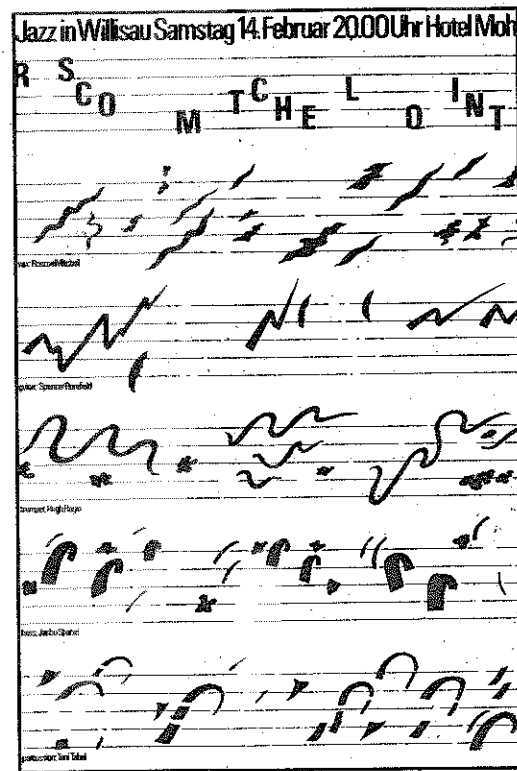 Jazz in Willisau Samstag 14. Februar 20.00 Uhr Hotel Moh
R S C O M T C H E L Q I N T
Roscoe Mitchell
guitar: Spencer Barefield
trumpet: Hugh
bass: Jaribu
percussion: Tani Tabbal